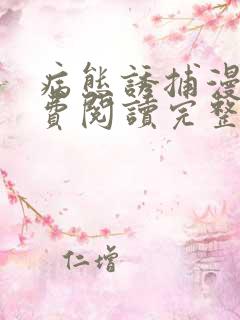 病態誘捕漫
費閱讀完整
仁增